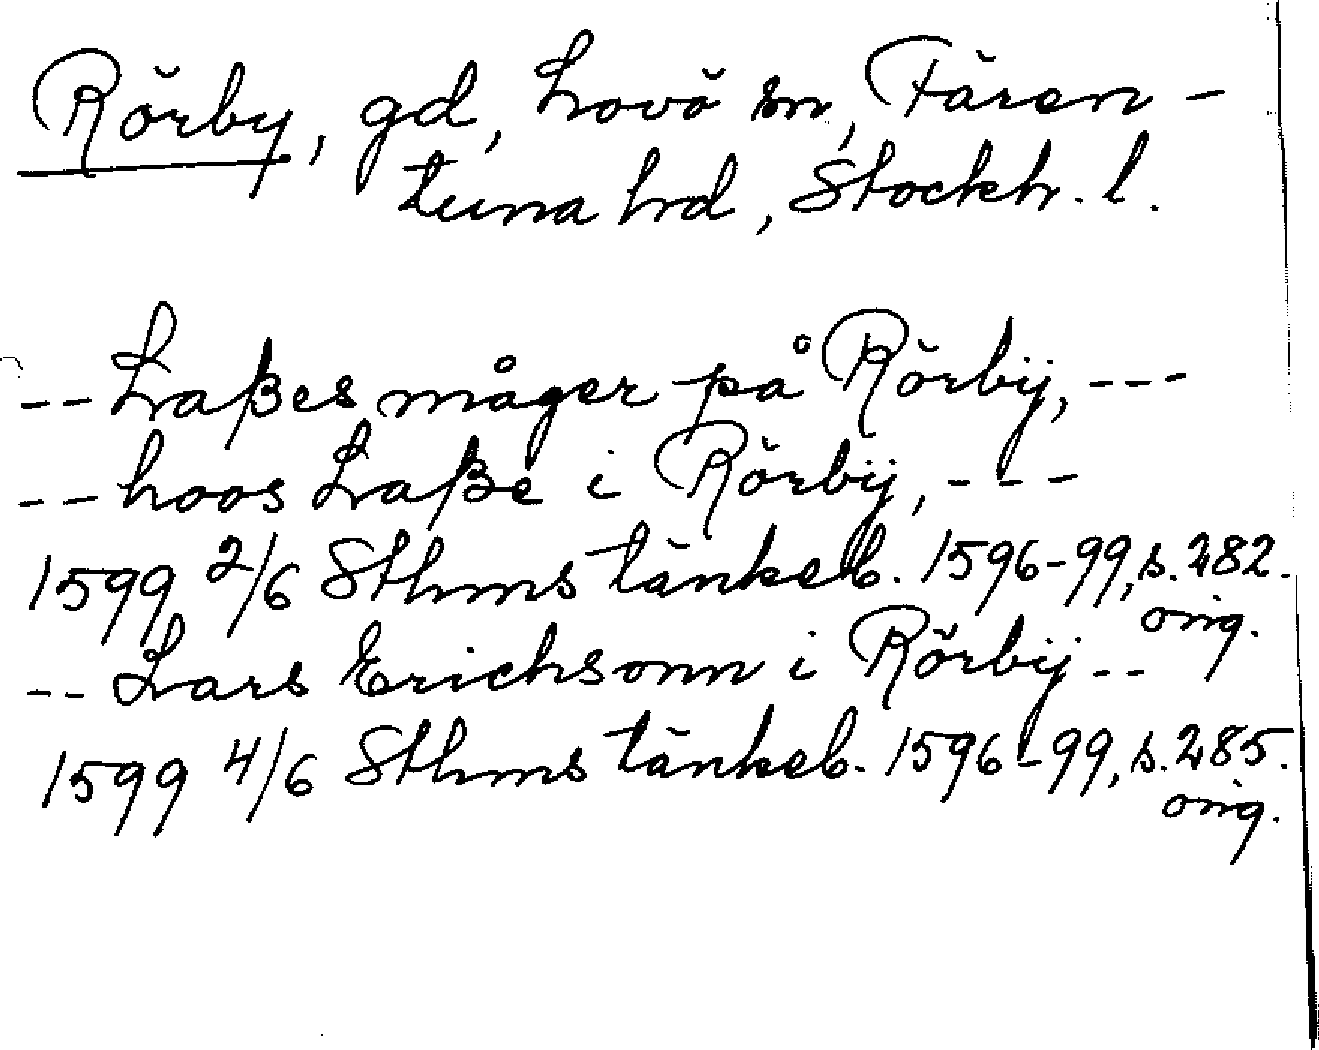 Rörby, gd, Lovö sn, Fären-
tuna hrd, Stockh. l.
-- Laßes måger på Rörbÿ, ---
-- hoos Laße i Rörbÿ, ---
1599 2/6 Sthms tänkeb. 1596-99, s. 282.
orig.
-- Lars Erichsonn i Rörbÿ --
1599 4/6 Sthms tänkeb. 1596-99, s. 285.
orig.